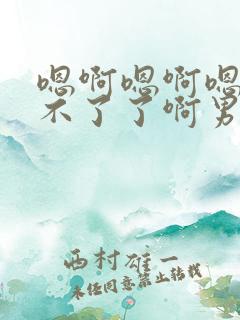 嗯啊嗯啊嗯
不了了啊男
西村雄一
未经同意禁止转载